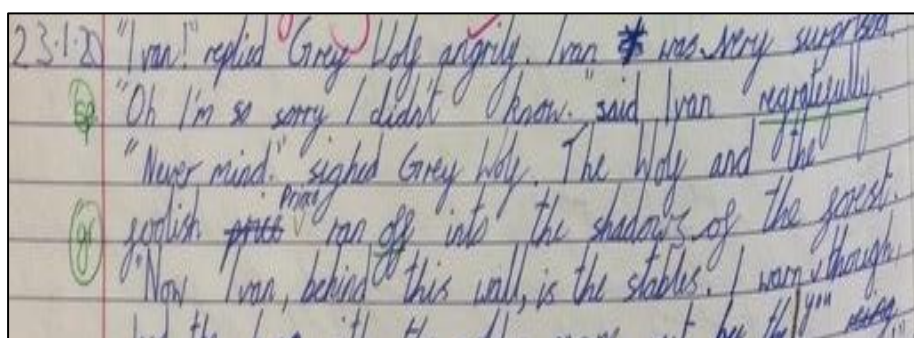 23.1.20 "Ivan!" replied Grey Wolf angrily. Ivan was very surprised.
sp "Oh I'm so sorry I didn't know." said Ivan regratefully.
"Never mind." sighed Grey Wolf. The Wolf and the
Prince
gr foolish ran off into the shadows of the forest.
"Now Ivan, behind this wall, is the stables. I warn though,